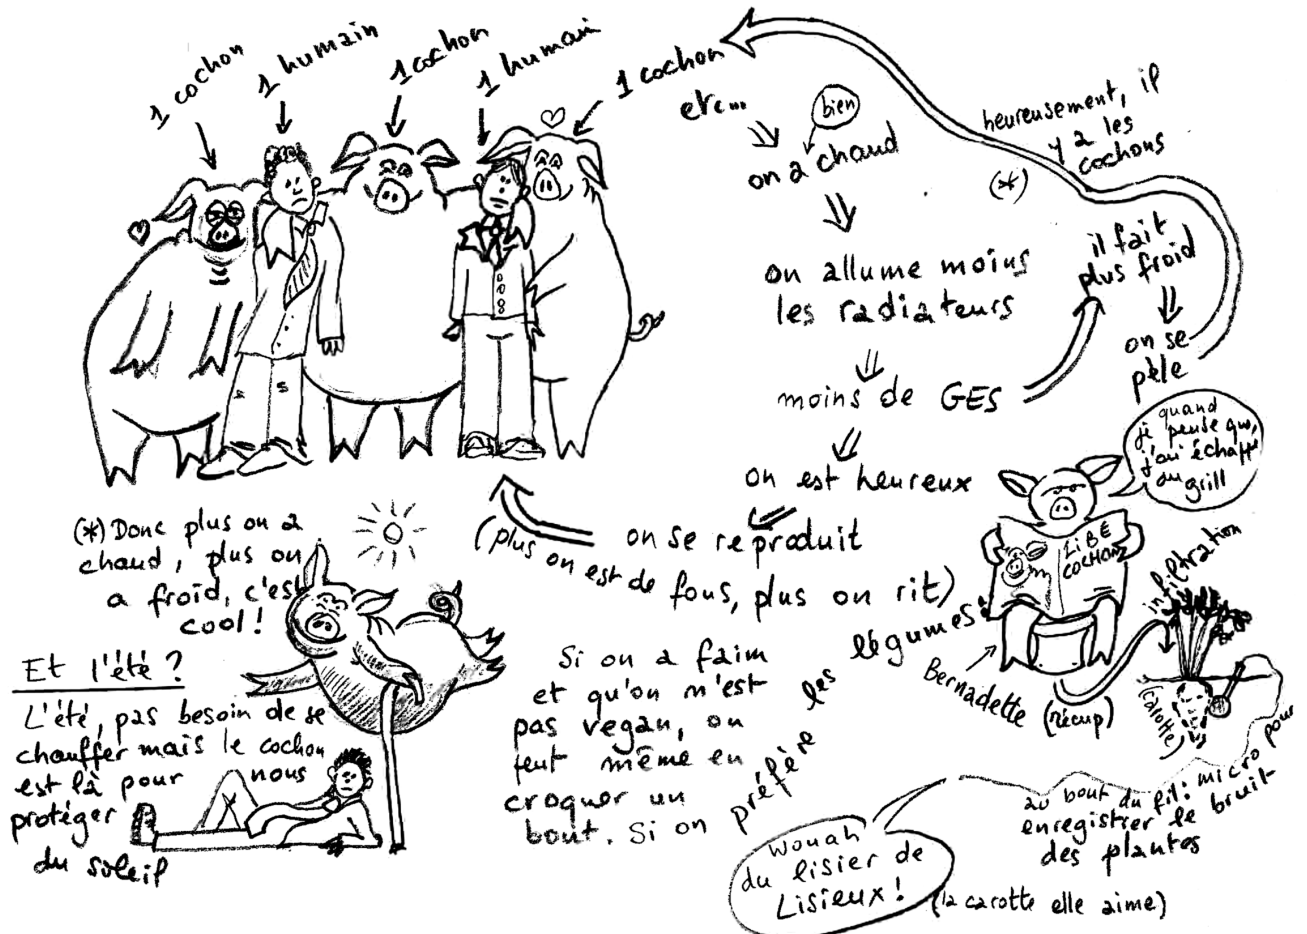 1 cochon
1 humain
1 cochon
1 humain
1 cochon
etc...
bien
on a chaud
on allume moins
les radiateurs
moins de GES
il fait
plus froid
on se
pèle
heureusement, il
y a les
cochons
(*)
on est heureux
on se reproduit
(plus on est de fous, plus on rit)
(*) Donc plus on a
chaud, plus on
a froid, c'est
cool !
Et l'été ?
L'été, pas besoin de se
chauffer mais le cochon
est là pour nous
protéger
du soleil
Si on a faim
et qu'on n'est
pas vegan, on
peut même en
croquer un
bout. Si on préfère les légumes :
quand
je pense que
j'ai échappé
au
grill
LIBÉ
COCHON
Bernadette
(récup)
infiltration
(carotte)
au bout du fil : micro pour
enregistrer le bruit
des plantes
Wouah
du lisier de
Lisieux !
(la carotte elle aime)